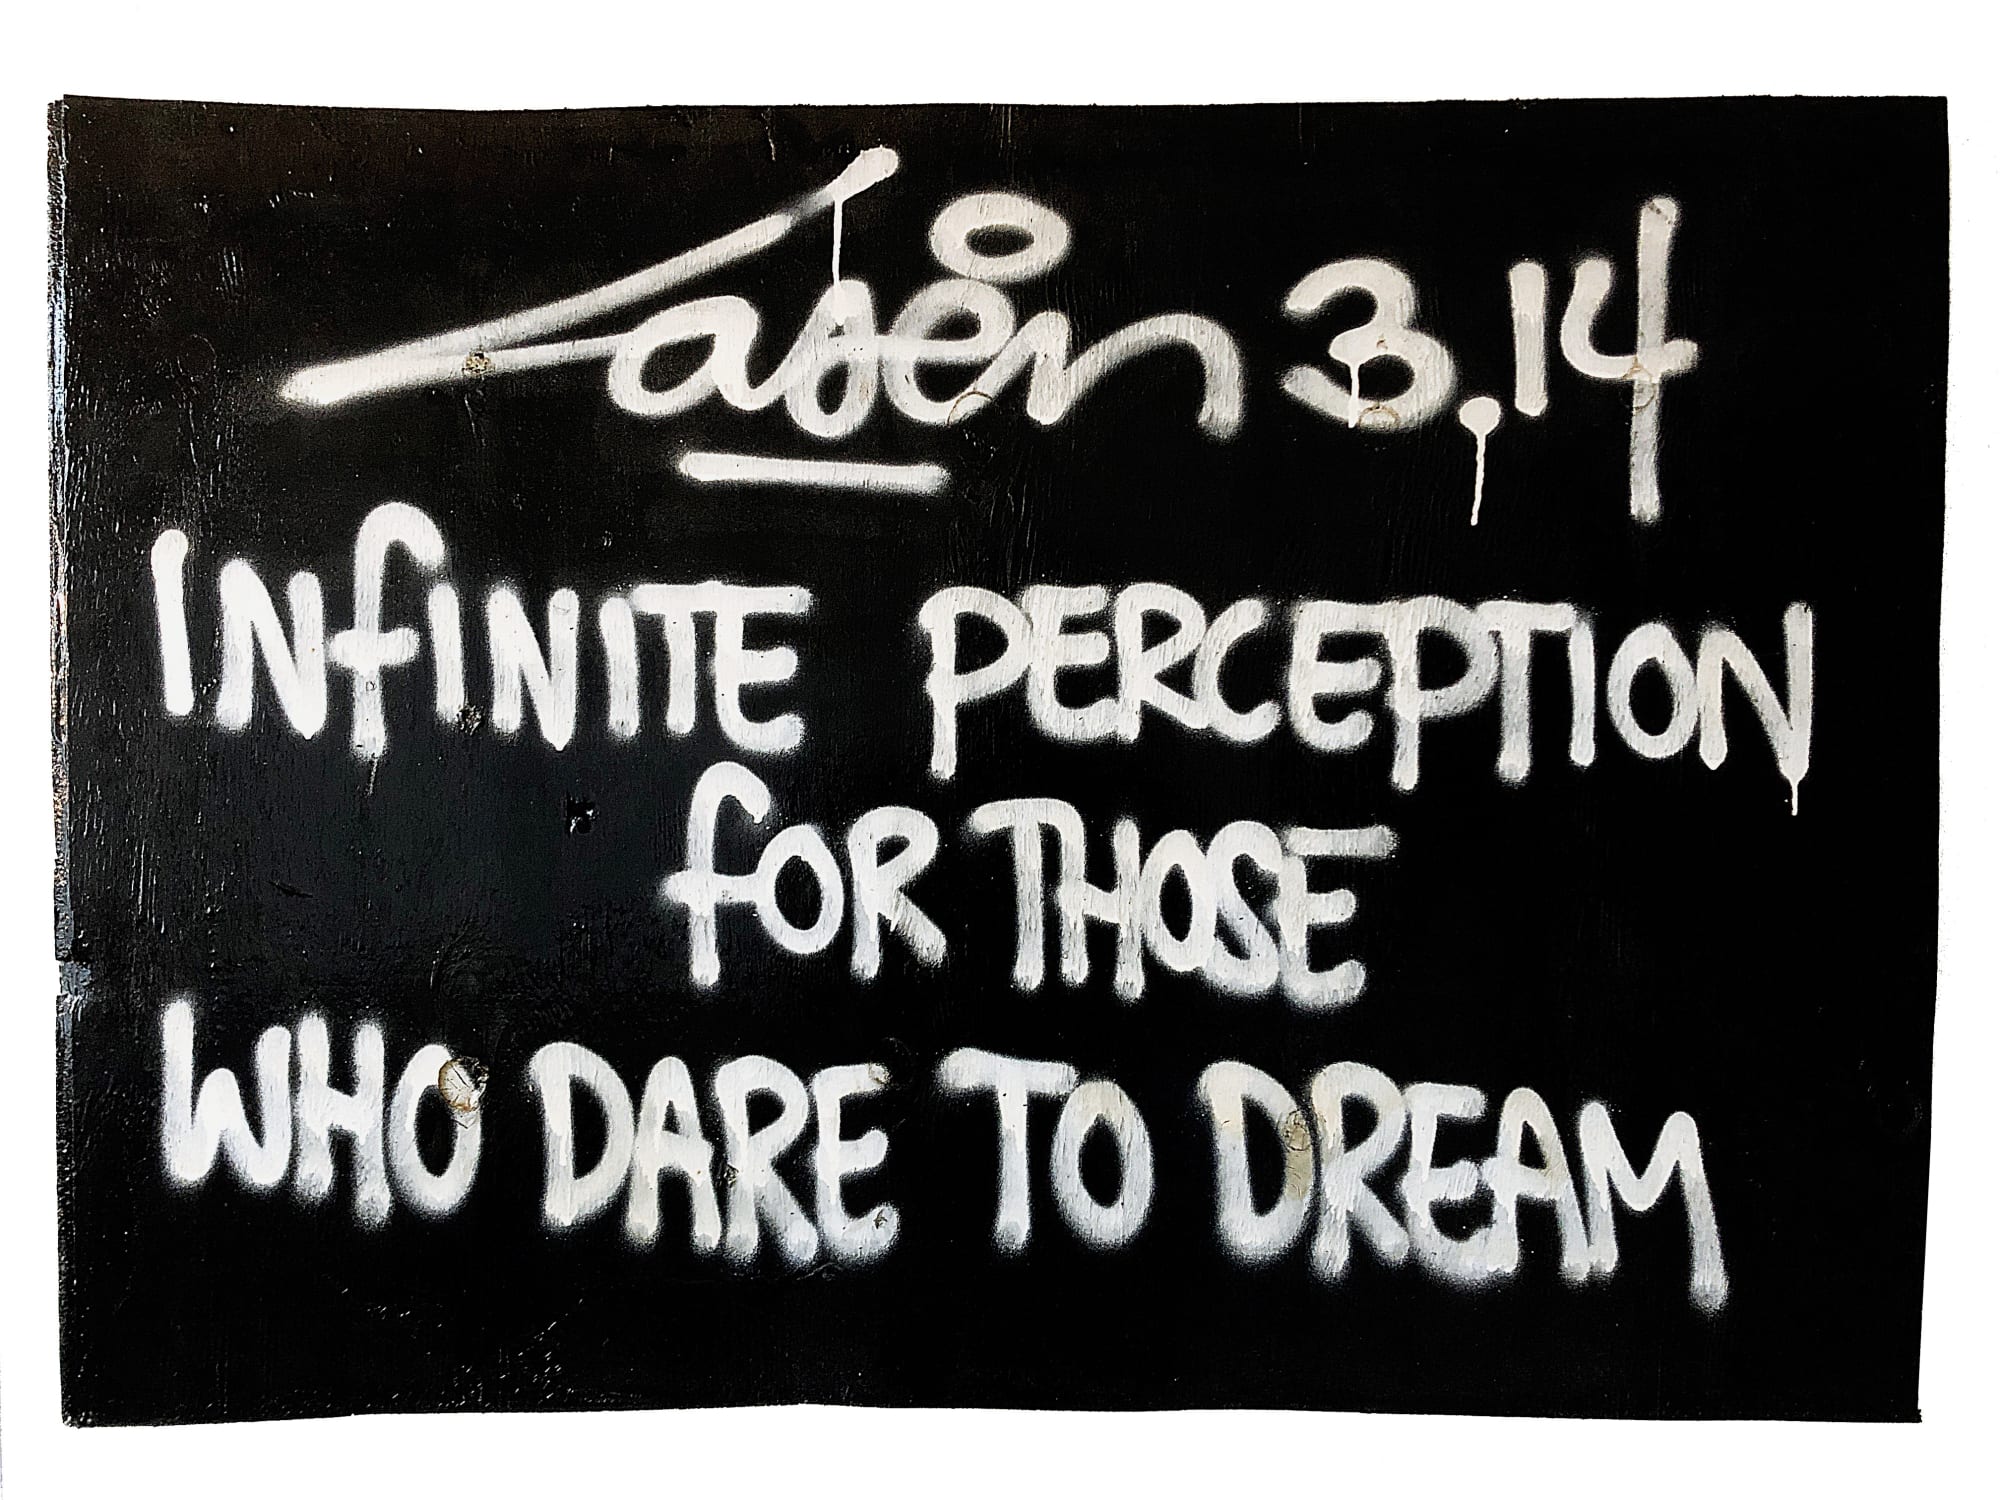 Laser 3,14
INfINITE PERCEPTION
fOR THOSE
WHO DARE TO DREAM